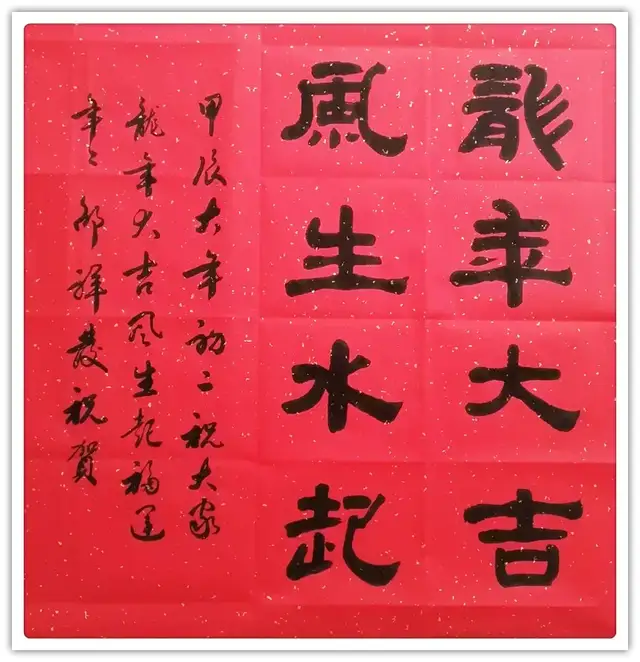 龍年大吉
風生水起
甲辰大年初二祝大家
龍年大吉风生起福运
年々邵祥發祝賀